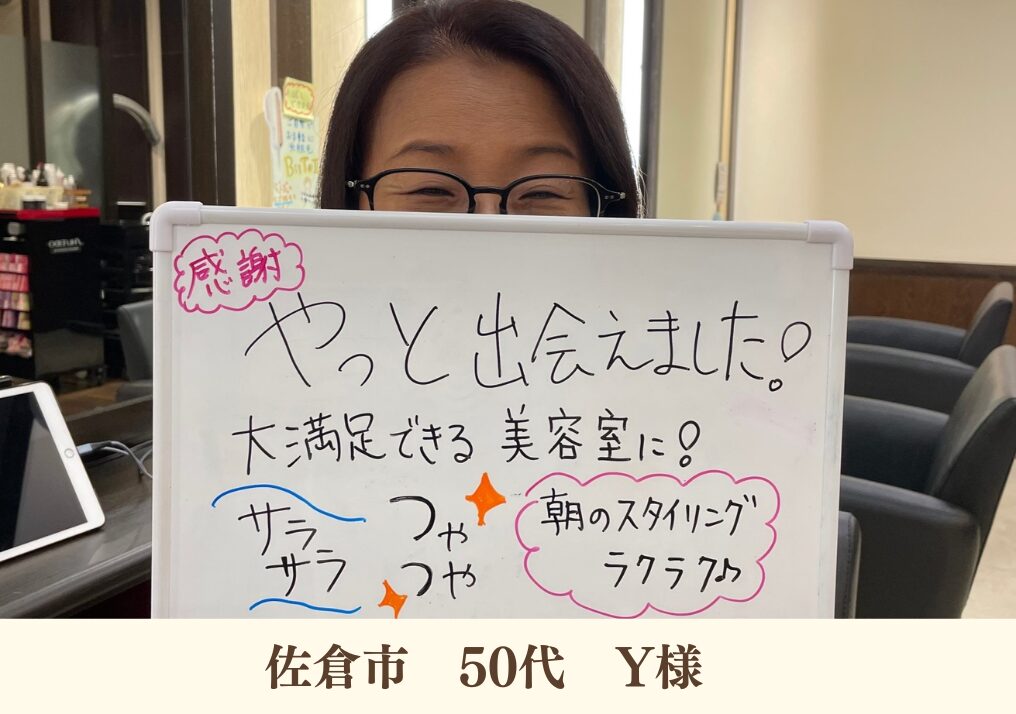 感謝
やっと出会えました!
大満足できる 美容室に!
サラ
サラ
つや
つや
朝のスタイリング
ラクラク♪
佐倉市 50代 Y様